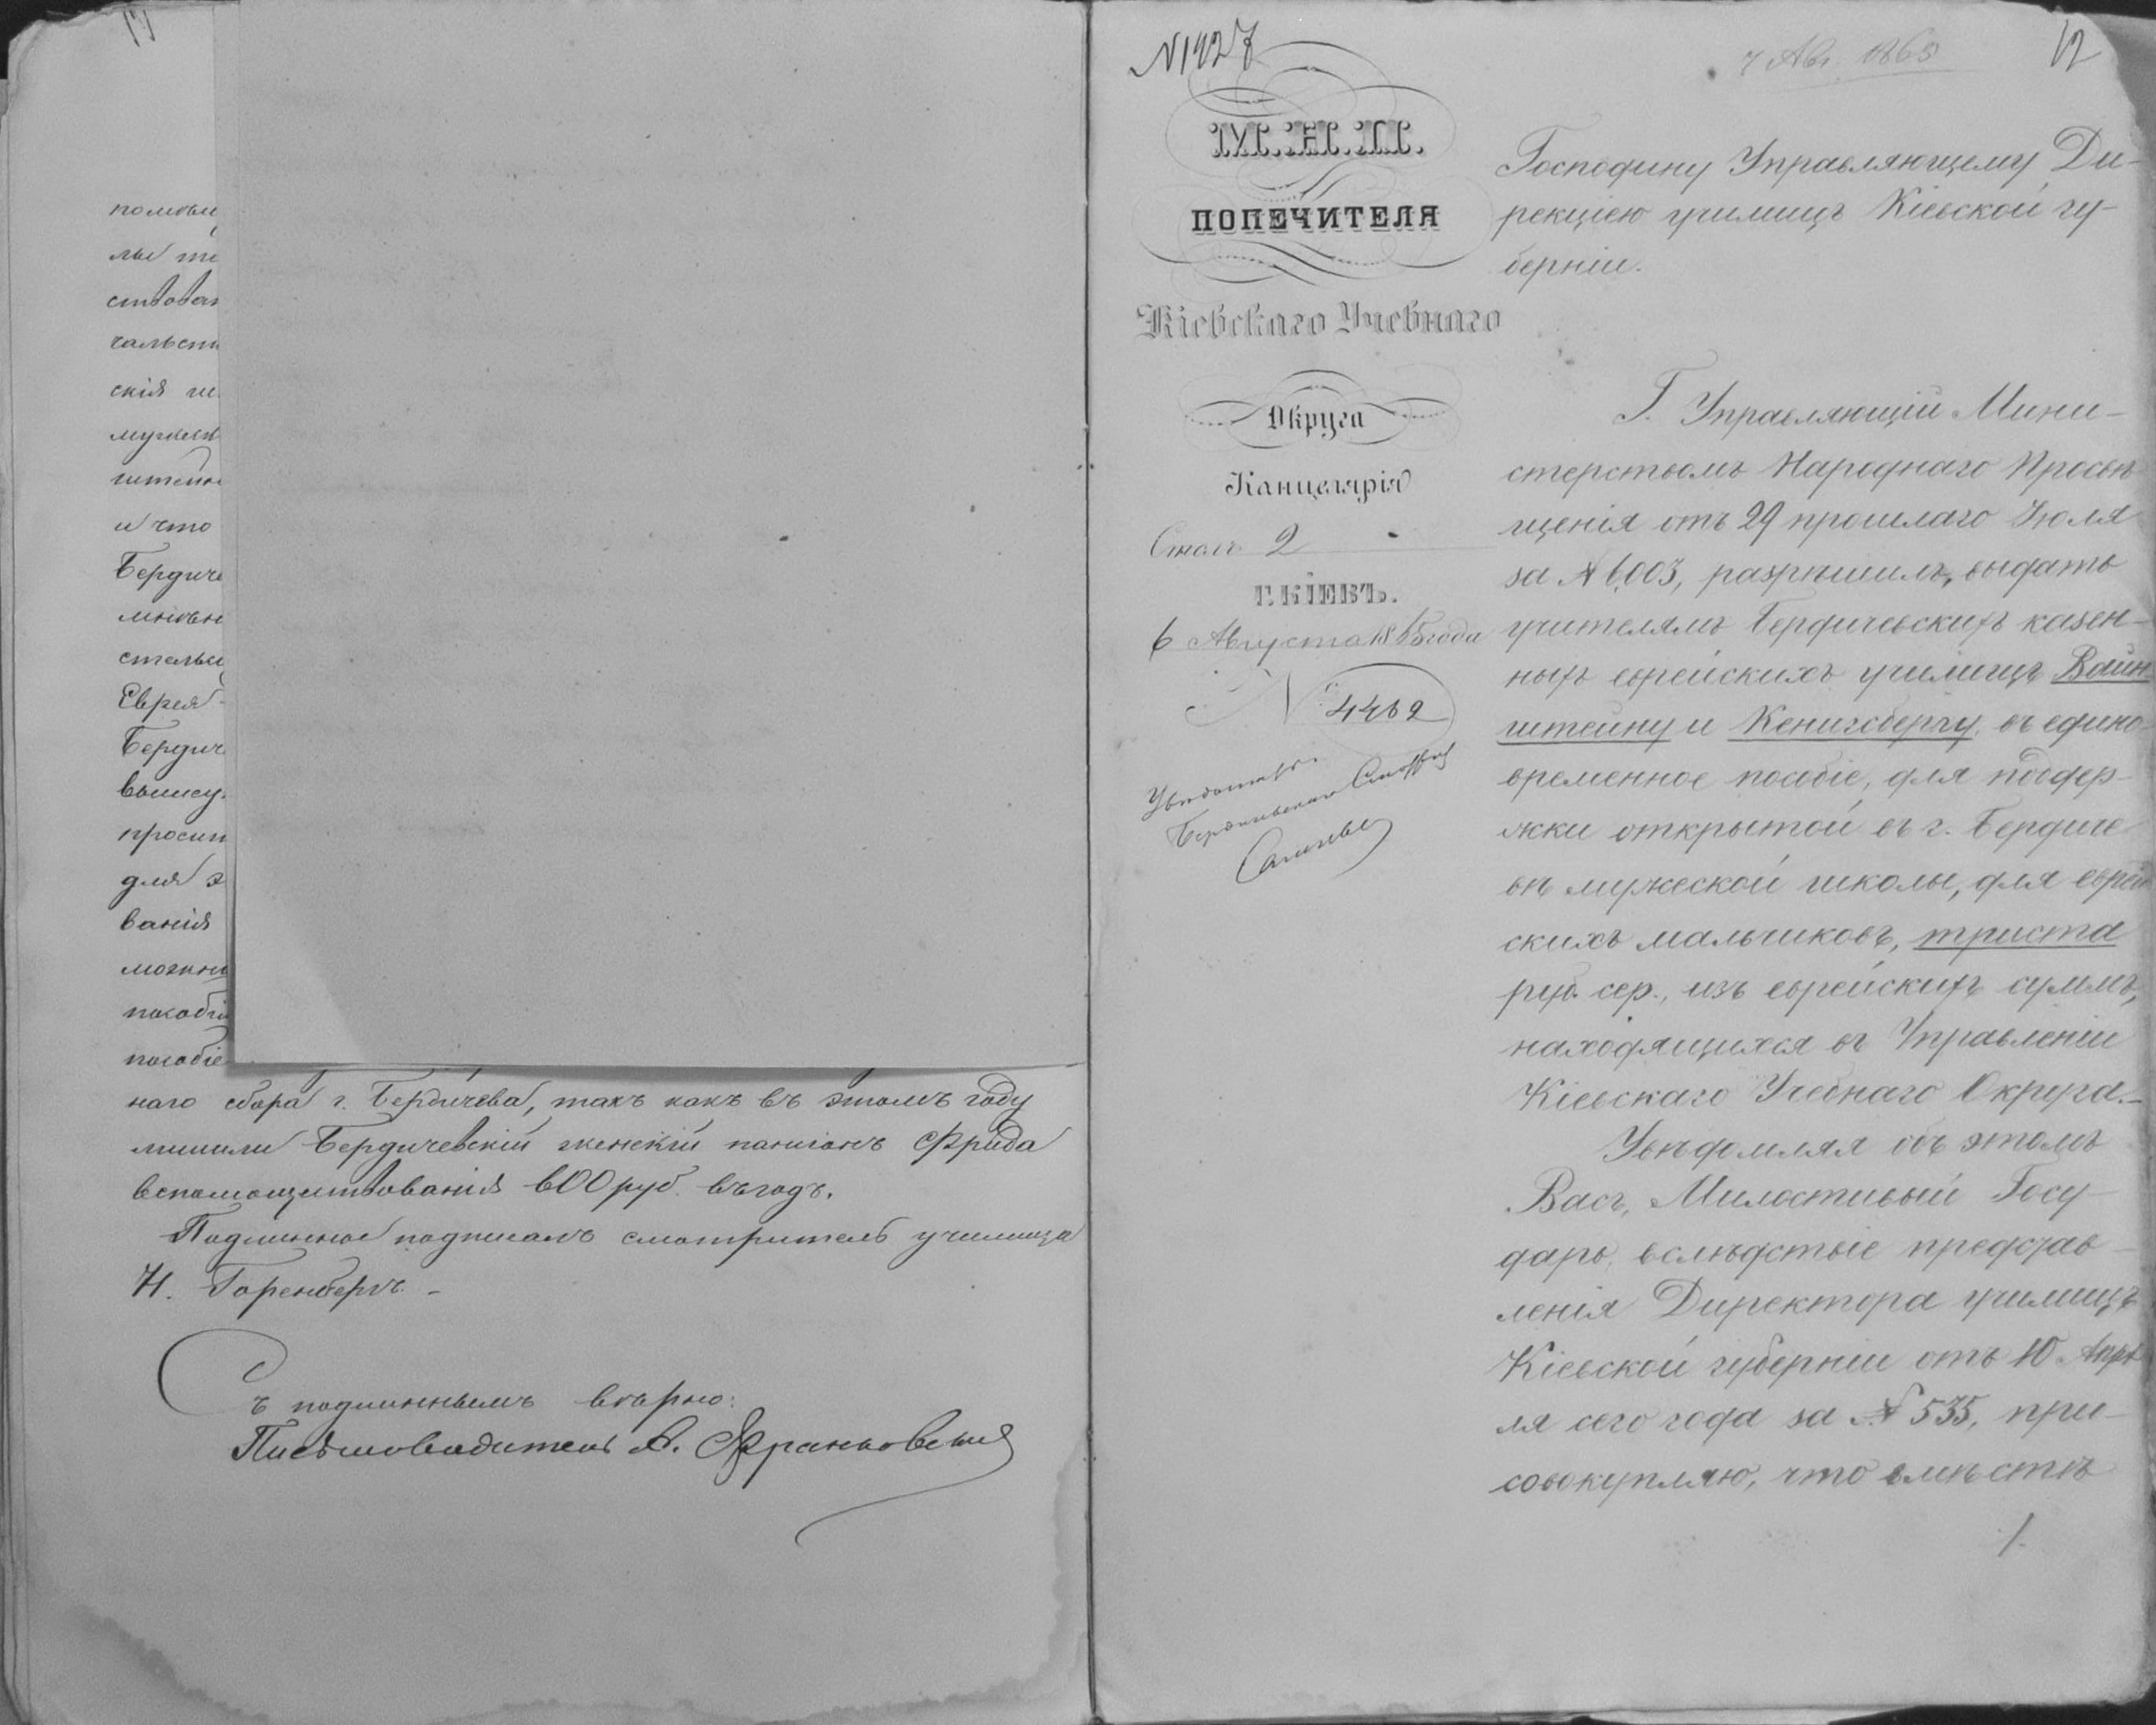 ство
скія
и что
Бердиче
Еврея
Бердич
просит
для э
ванія
пособі
пособіе
наго сбора г. Бердичева, такъ какъ въ этомъ году
лишили Бердичевскій женскій пансіонъ Фрида
вспомоществованія 600 руб. въ годъ.
Подлинное подписалъ смотритель училища
Н. Горенбергъ. -
Съ подлиннымъ вѣрно:
Письмоводитель А. Франковскій
N 1427
7 Авг. 1865
12
М.Н.П.
ПОПЕЧИТЕЛЯ
Кіевскаго Учебнаго
Округа
Канцелярія
Столъ 2
Г. КІЕВЪ.
6 Августа 1865 года
N 4462
Господину Управляющему Ди-
рекціею училищъ Кіевской гу-
берніи.
Г. Управляющій Мини-
стерствомъ Народнаго Просвѣ
щенія отъ 29 прошлаго Іюля
за № 6003, разрѣшилъ, выдать
учителямъ Бердичевскихъ казен-
ныхъ еврейскихъ училищъ Вайн
штейну и Кенигсбергу, въ едино-
временное пособіе, для поддер-
жки открытой въ г. Бердиче
вѣ мужеской школы, для еврей
скихъ мальчиковъ, триста
руб. сер., изъ еврейскихъ суммъ,
находящихся въ Управленіи
Кіевскаго Учебнаго Округа.-
Увѣдомляя объ этомъ
Васъ, Милостивый Госу-
дарь, вслѣдствіе представ-
ленія Директора училищъ
Кіевской губерніи отъ 10 Апрѣ
ля сего года за № 535, при-
совокупляю, что вмѣстѣ